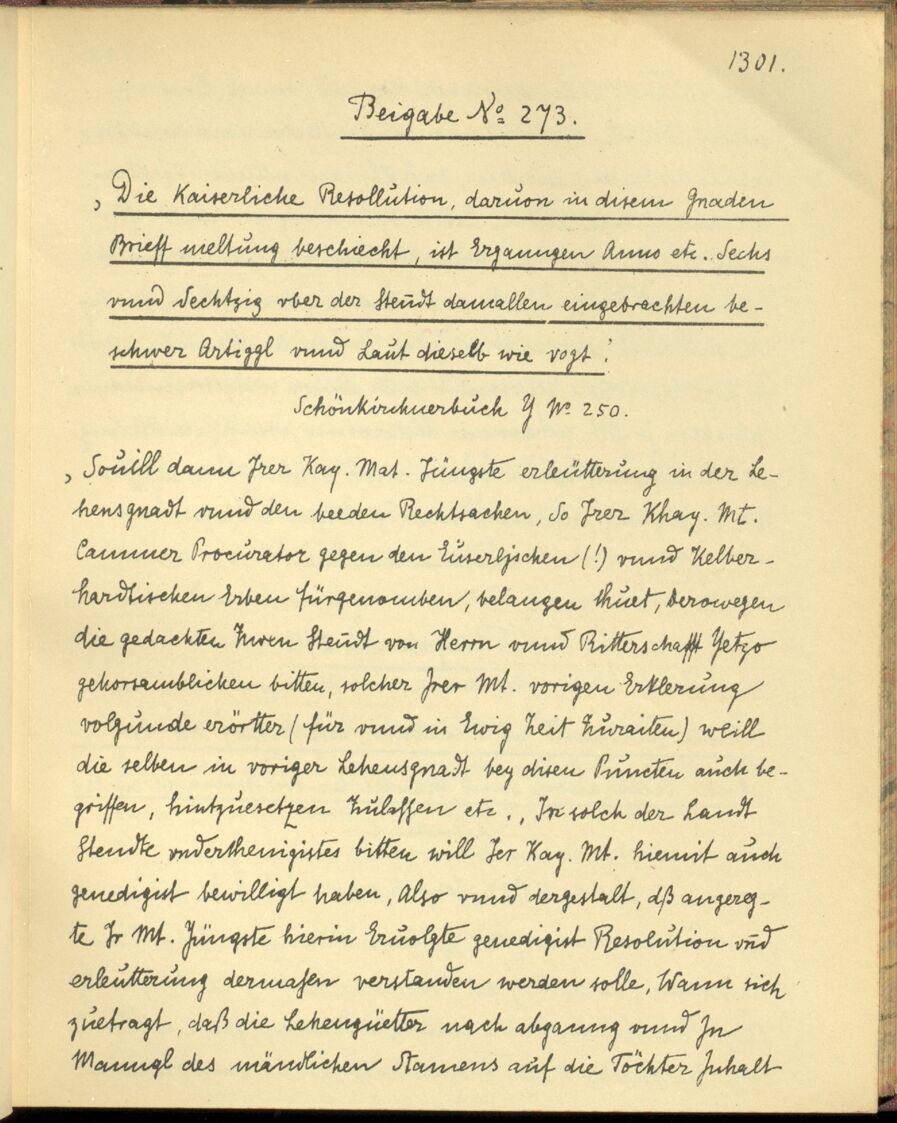 1301.
Beigabe No 273.
„Die Kaiserliche Resollution, daruon in disem Gnaden
Brieff meltung beschiecht, ist Ergangen Anno etc. Sechs
vnnd Sechtzig vber der Stendt damallen eingebrachten be-
schwer Artiggl vnnd Laut dieselb wie vogt.“
Schönkirchnerbuch Y No 250.
„Souill dann Jrer Kay. Mat. Jüngste erleütterung in der Le-
hensgnadt vnnd den beeden Rechtsachen, So Jrer Khay. Mt.
Cammer Procurator gegen den Eüserljschen (!) vnnd Kelber-
hardtischen Erben fürgenomben, belangen thuet, Derowegen
die gedachten Zwen Stendt von Herrn vnnd Ritterschafft Yetzo
gehorsamblichen bitten, solcher Jrer Mt. vorigen Erklerung
volgunde erörtter (für vnnd in Ewig Zeit Zuraiten) weill
die selben in voriger Lehensgnadt bey disen Puncten auch be-
griffen, hintzuesetzen Zulassen etc., In solch der Landt
Stendte vnderthenigistes bitten will Jer Kay. Mt. hiemit auch
genedigist bewilligt haben, Also vnnd dergestalt, dß angereg-
te Jr Mt. Jüngste hierin Eruolgte genedigist Resolution vnd
erleutterung dermasen verstanden werden solle, Wann sich
zuetragt, daß die Lehengüetter nach abganng vnnd Jn
Manngl des mändlichen Stamens auf die Töchter Jnhalt